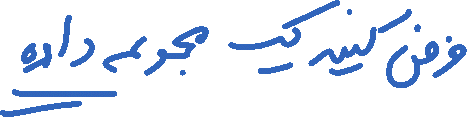 فرض کنید یک مجموعه داده